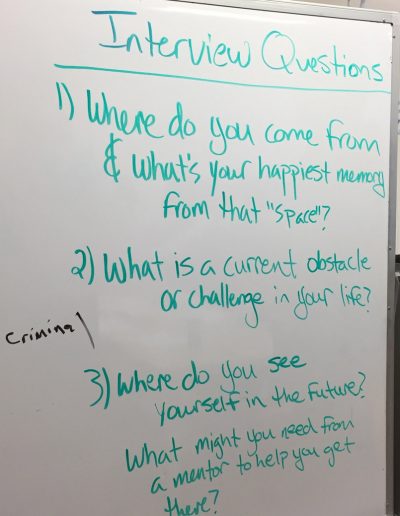 Interview Questions
1) Where do you come from
& What's your happiest memory
from that "space"?
2) What is a current obstacle
or challenge in your life?
criminal
3) Where do you see
yourself in the future?
What might you need from
a mentor to help you get
there?